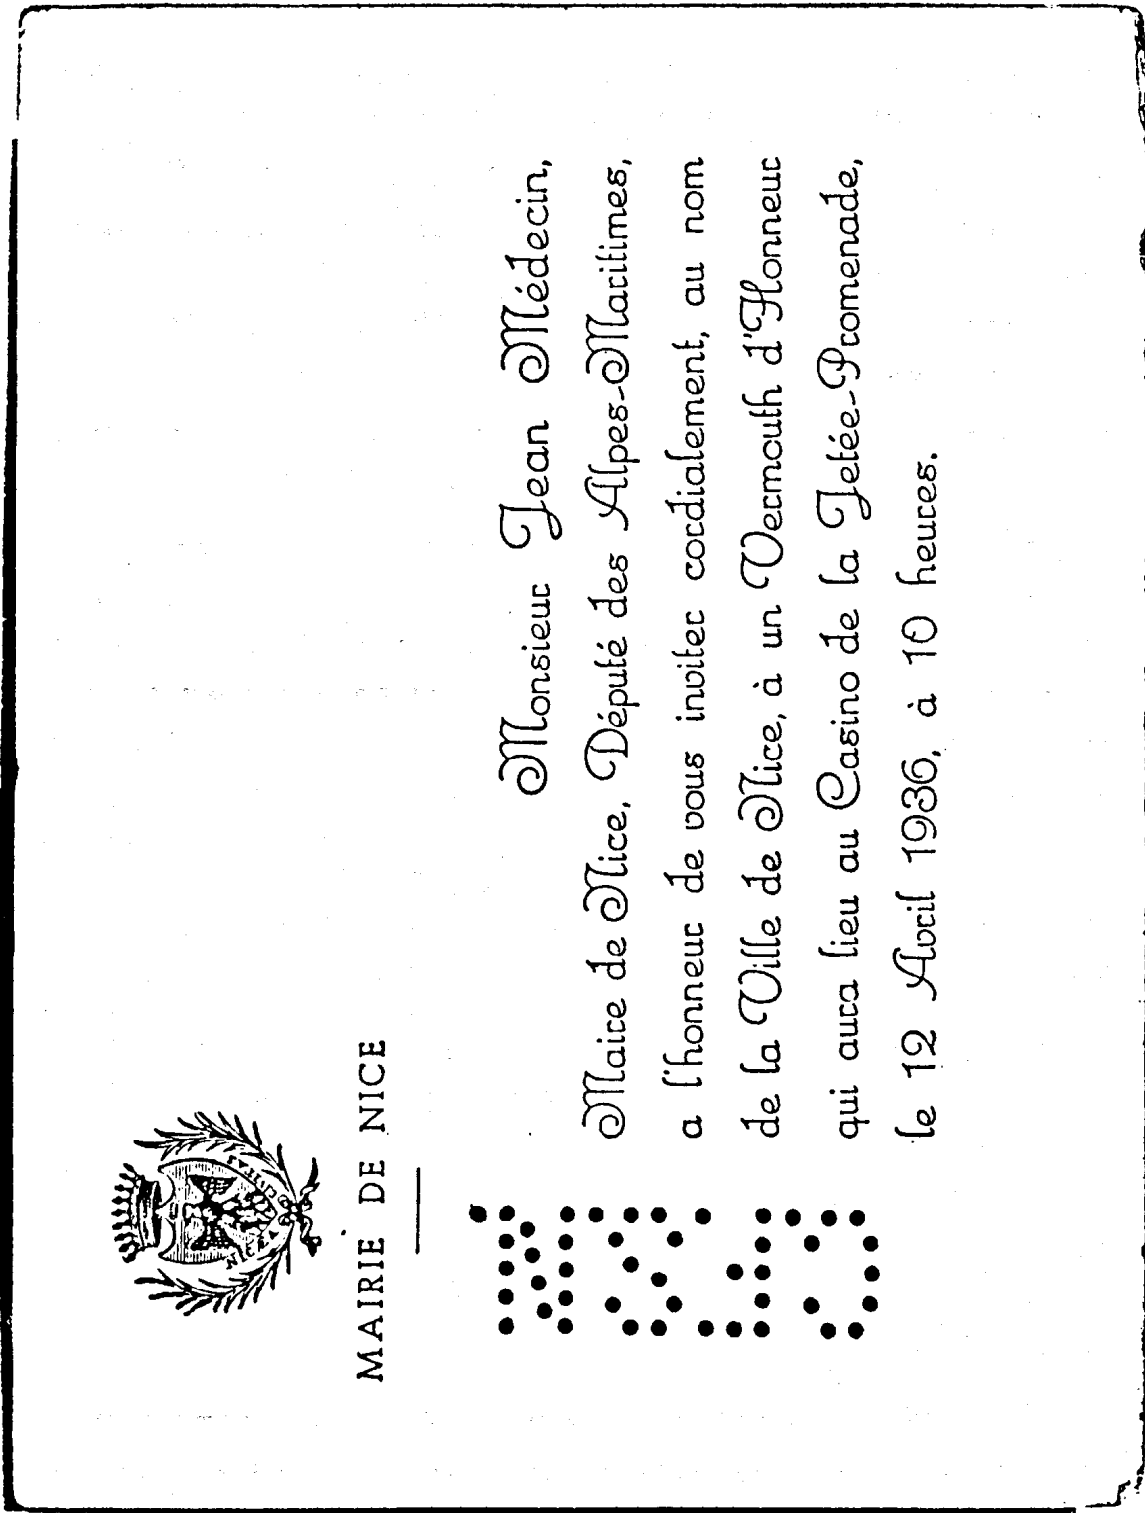 MAIRIE DE NICE
CFSN
Monsieur Jean Médecin,
Maire de Nice, Député des Alpes-Maritimes,
a l'honneur de vous inviter cordialement, au nom
de la Ville de Nice, à un Vermouth d'Honneur
qui aura lieu au Casino de la Jetée-Promenade,
le 12 Avril 1936, à 10 heures.